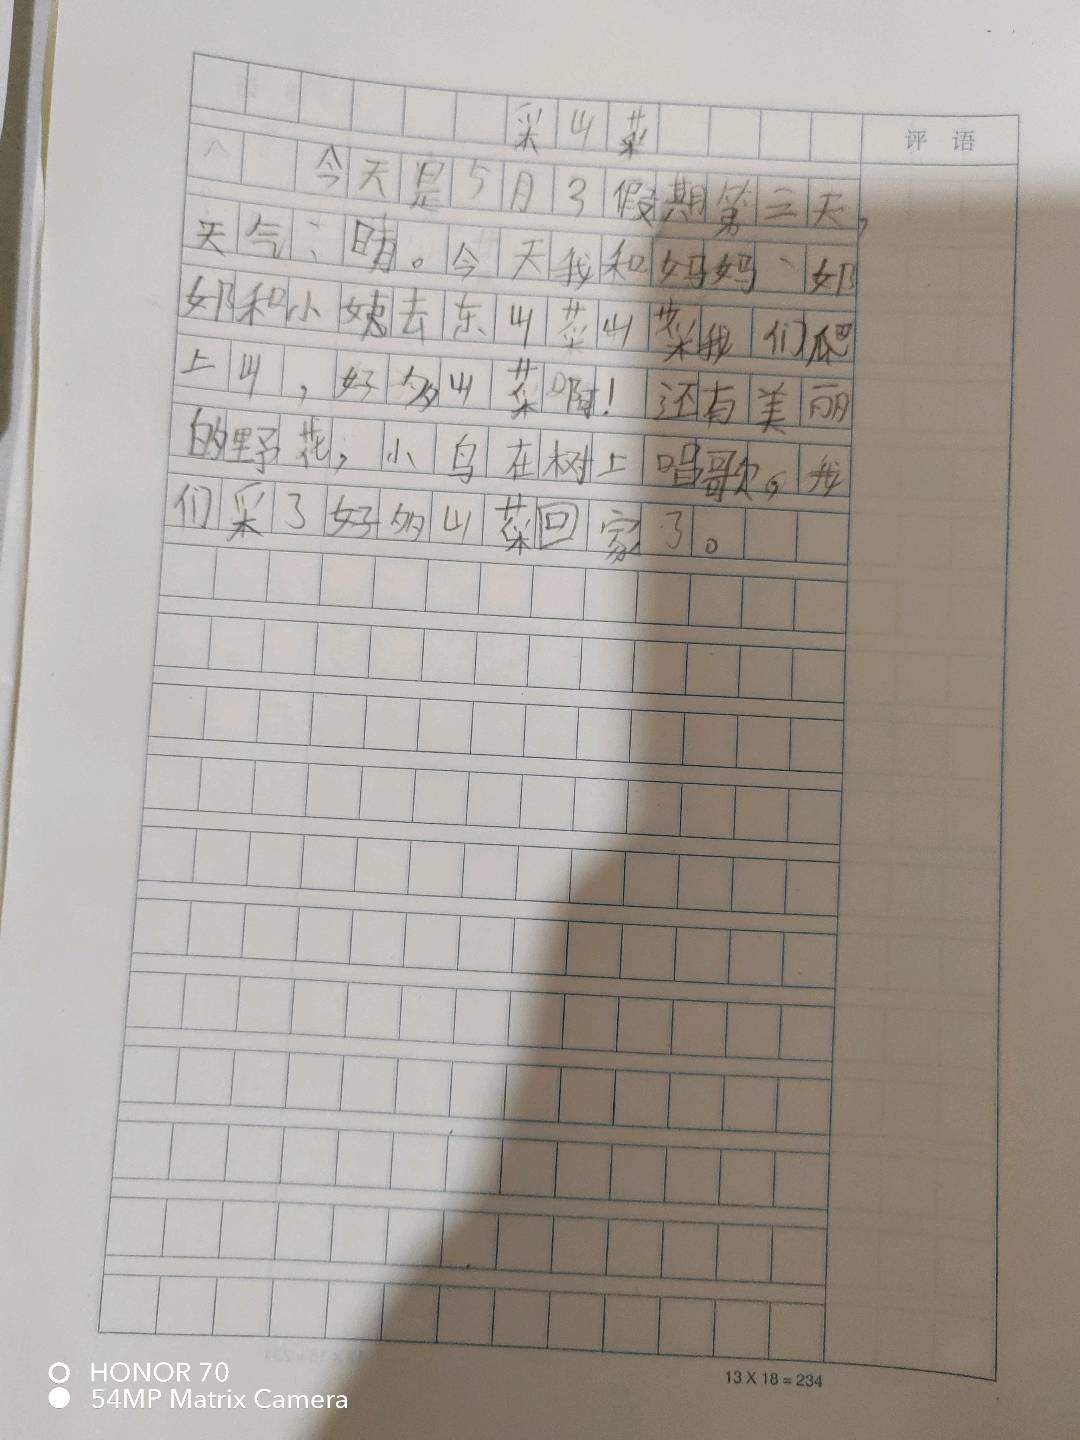 采山菜
评语
今天是5月3假期第三天,
天气:晴。今天我和妈妈、奶
奶和小姨去东山菜山菜我们爬
上山,好多山菜啊!还有美丽
的野花,小鸟在树上唱歌。我
们采了好多山菜回家了。
13 X 18 = 234
HONOR 70
54MP Matrix Camera